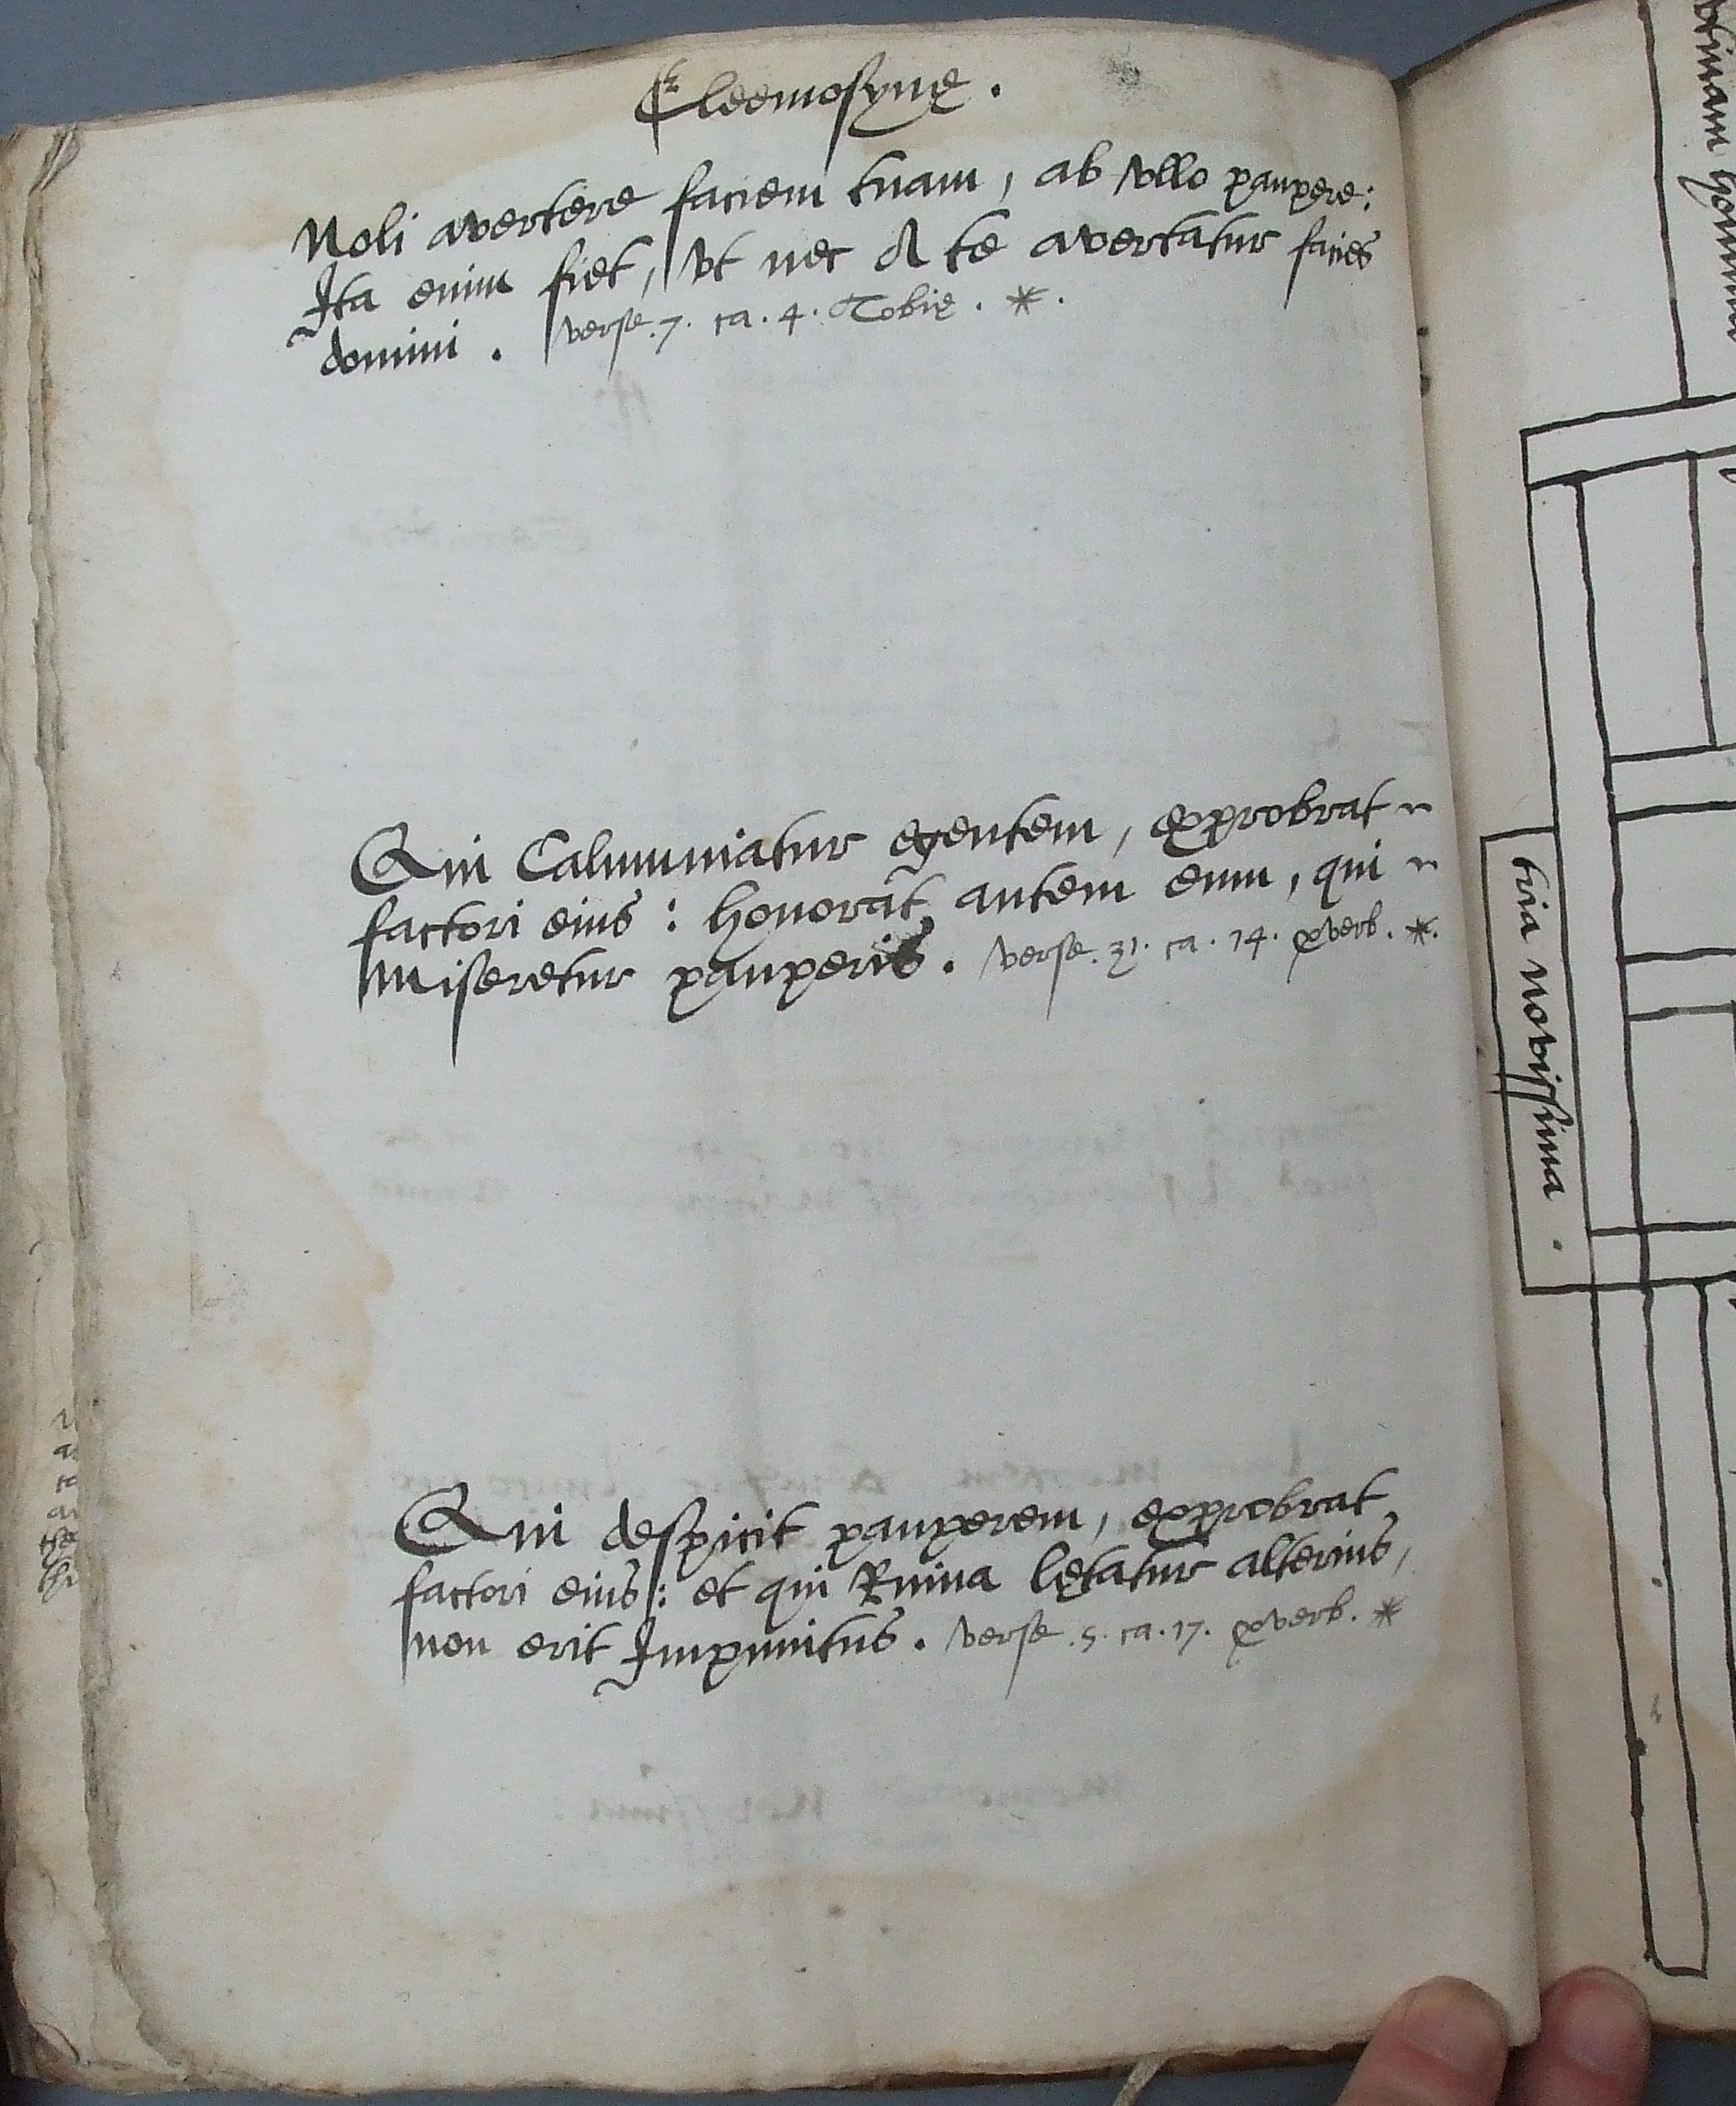 Eleemosynę .
Noli avertere faciem tuam, ab vllo paupere:
Ita enim fiet, vt nec A te avertatur facies
domini . verse .7. ca . 4 . Tobię . *.
Qui Calumniatur egentem, exprobrat ~
factori eius : honorat autem eum, qui ~
Miseretur pauperis . verse . 31. ca . 14 . proverb . *.
Qui despicit pauperem, exprobrat
factori eius : et qui Ruina lętatur alterius,
non erit Impunitus . verse .5. ca . 17. proverb . *
tria novissima .